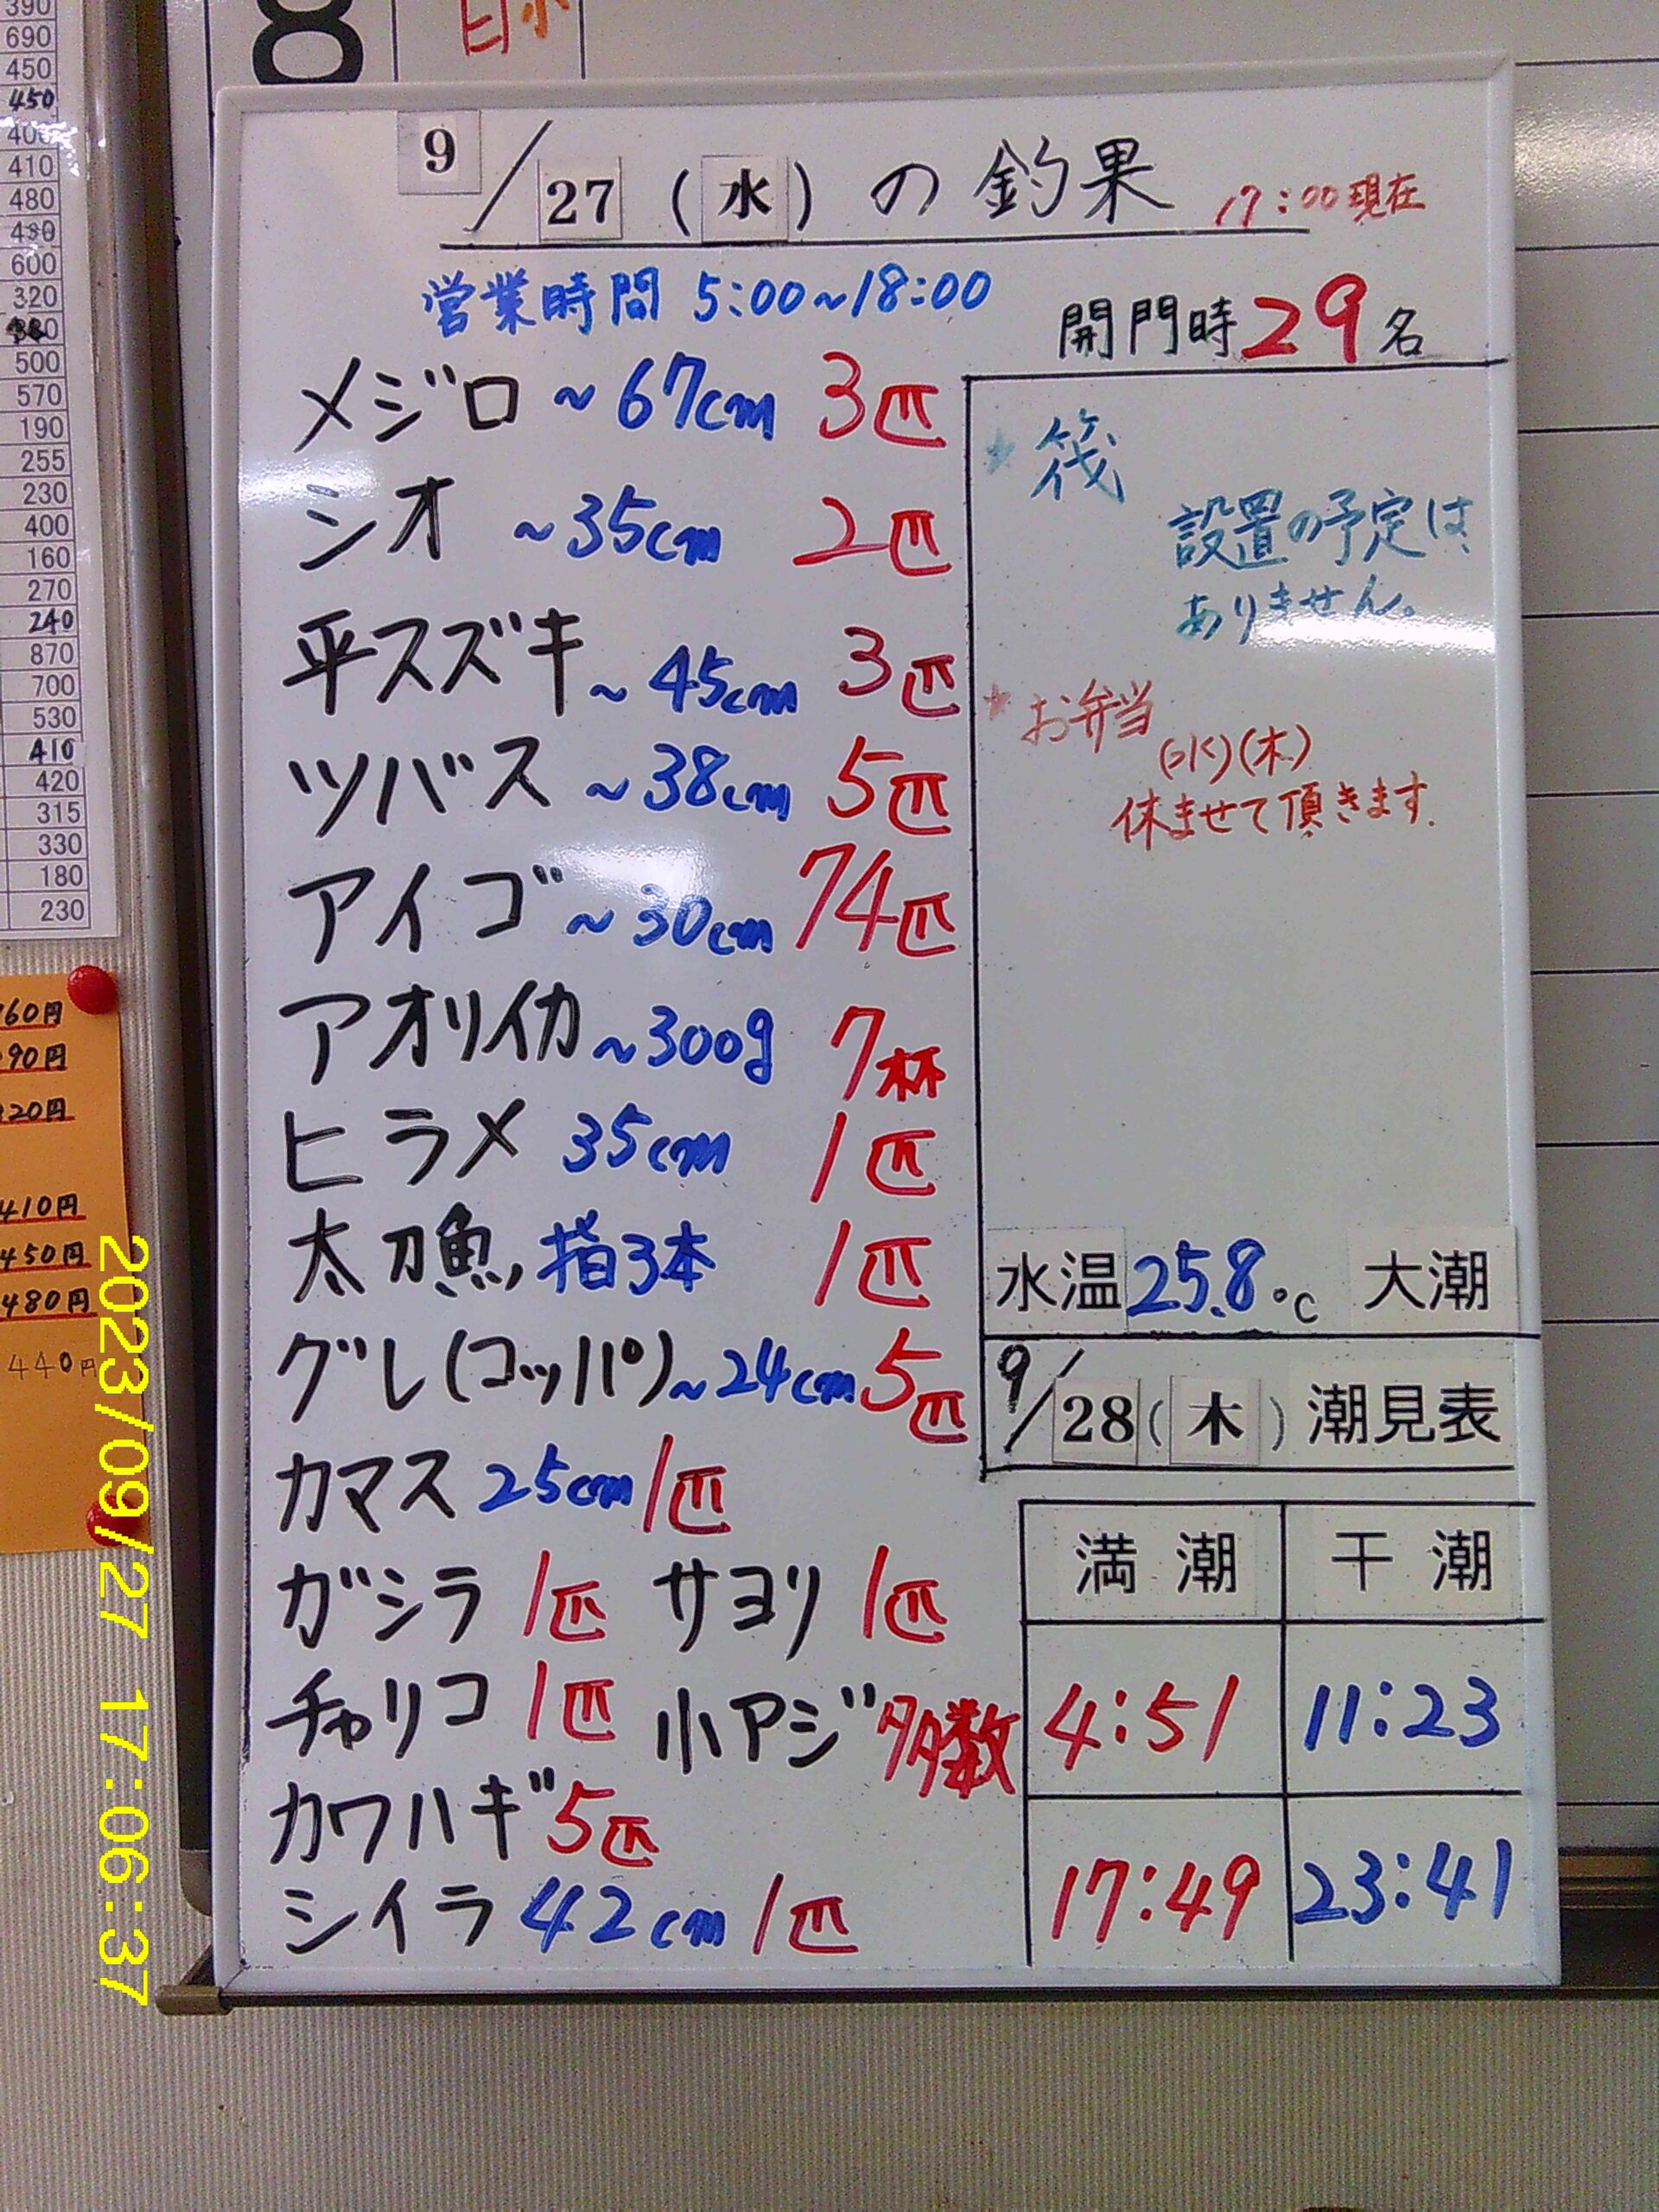 390
690
450
450
400
410
480
480
600
320
500
570
190
255
230
400
160
270
240
870
700
530
410
420
315
330
180
230
60円
90円
20円
410円
450円
480円
440円
9/27(水)の釣果 17:00現在
営業時間 5:00~18:00
開門時29名
メジロ ~67cm 3匹
シオ ~35cm 2匹
平スズキ~45cm 3匹
ツバス ~38cm 5匹
アイゴ~30cm 74匹
アオリイカ~300g 7杯
ヒラメ 35cm 1匹
太刀魚 指3本 1匹
グレ(コッパ)~24cm 5匹
カマス 25cm 1匹
ガシラ 1匹 サヨリ 1匹
チャリコ 1匹 小アジ 多数
カワハギ 5匹
シイラ 42cm 1匹
*筏
設置の予定は
ありません。
*お弁当
(水)(木)
休ませて頂きます.
水温25.8℃ 大潮
9/28(木)潮見表
満潮 干潮
4:51 11:23
17:49 23:41
2023/09/27 17:06:37